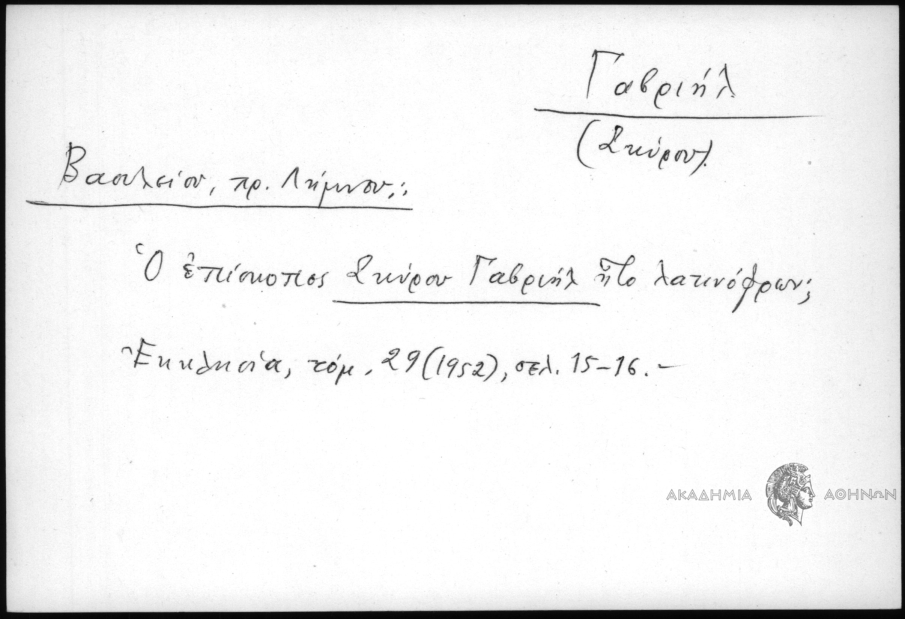 Γαβριήλ
(Σκύρου).
Βασιλείου, πρ. Λήμνου,:
Ὁ ἐπίσκοπος Σκύρου Γαβριήλ ἦτο λατινόφρων;
Ἐκκλησία, τόμ. 29 (1952), σελ. 15-16.-
ΑΚΑΔΗΜΙΑ ΑΘΗΝΩΝ